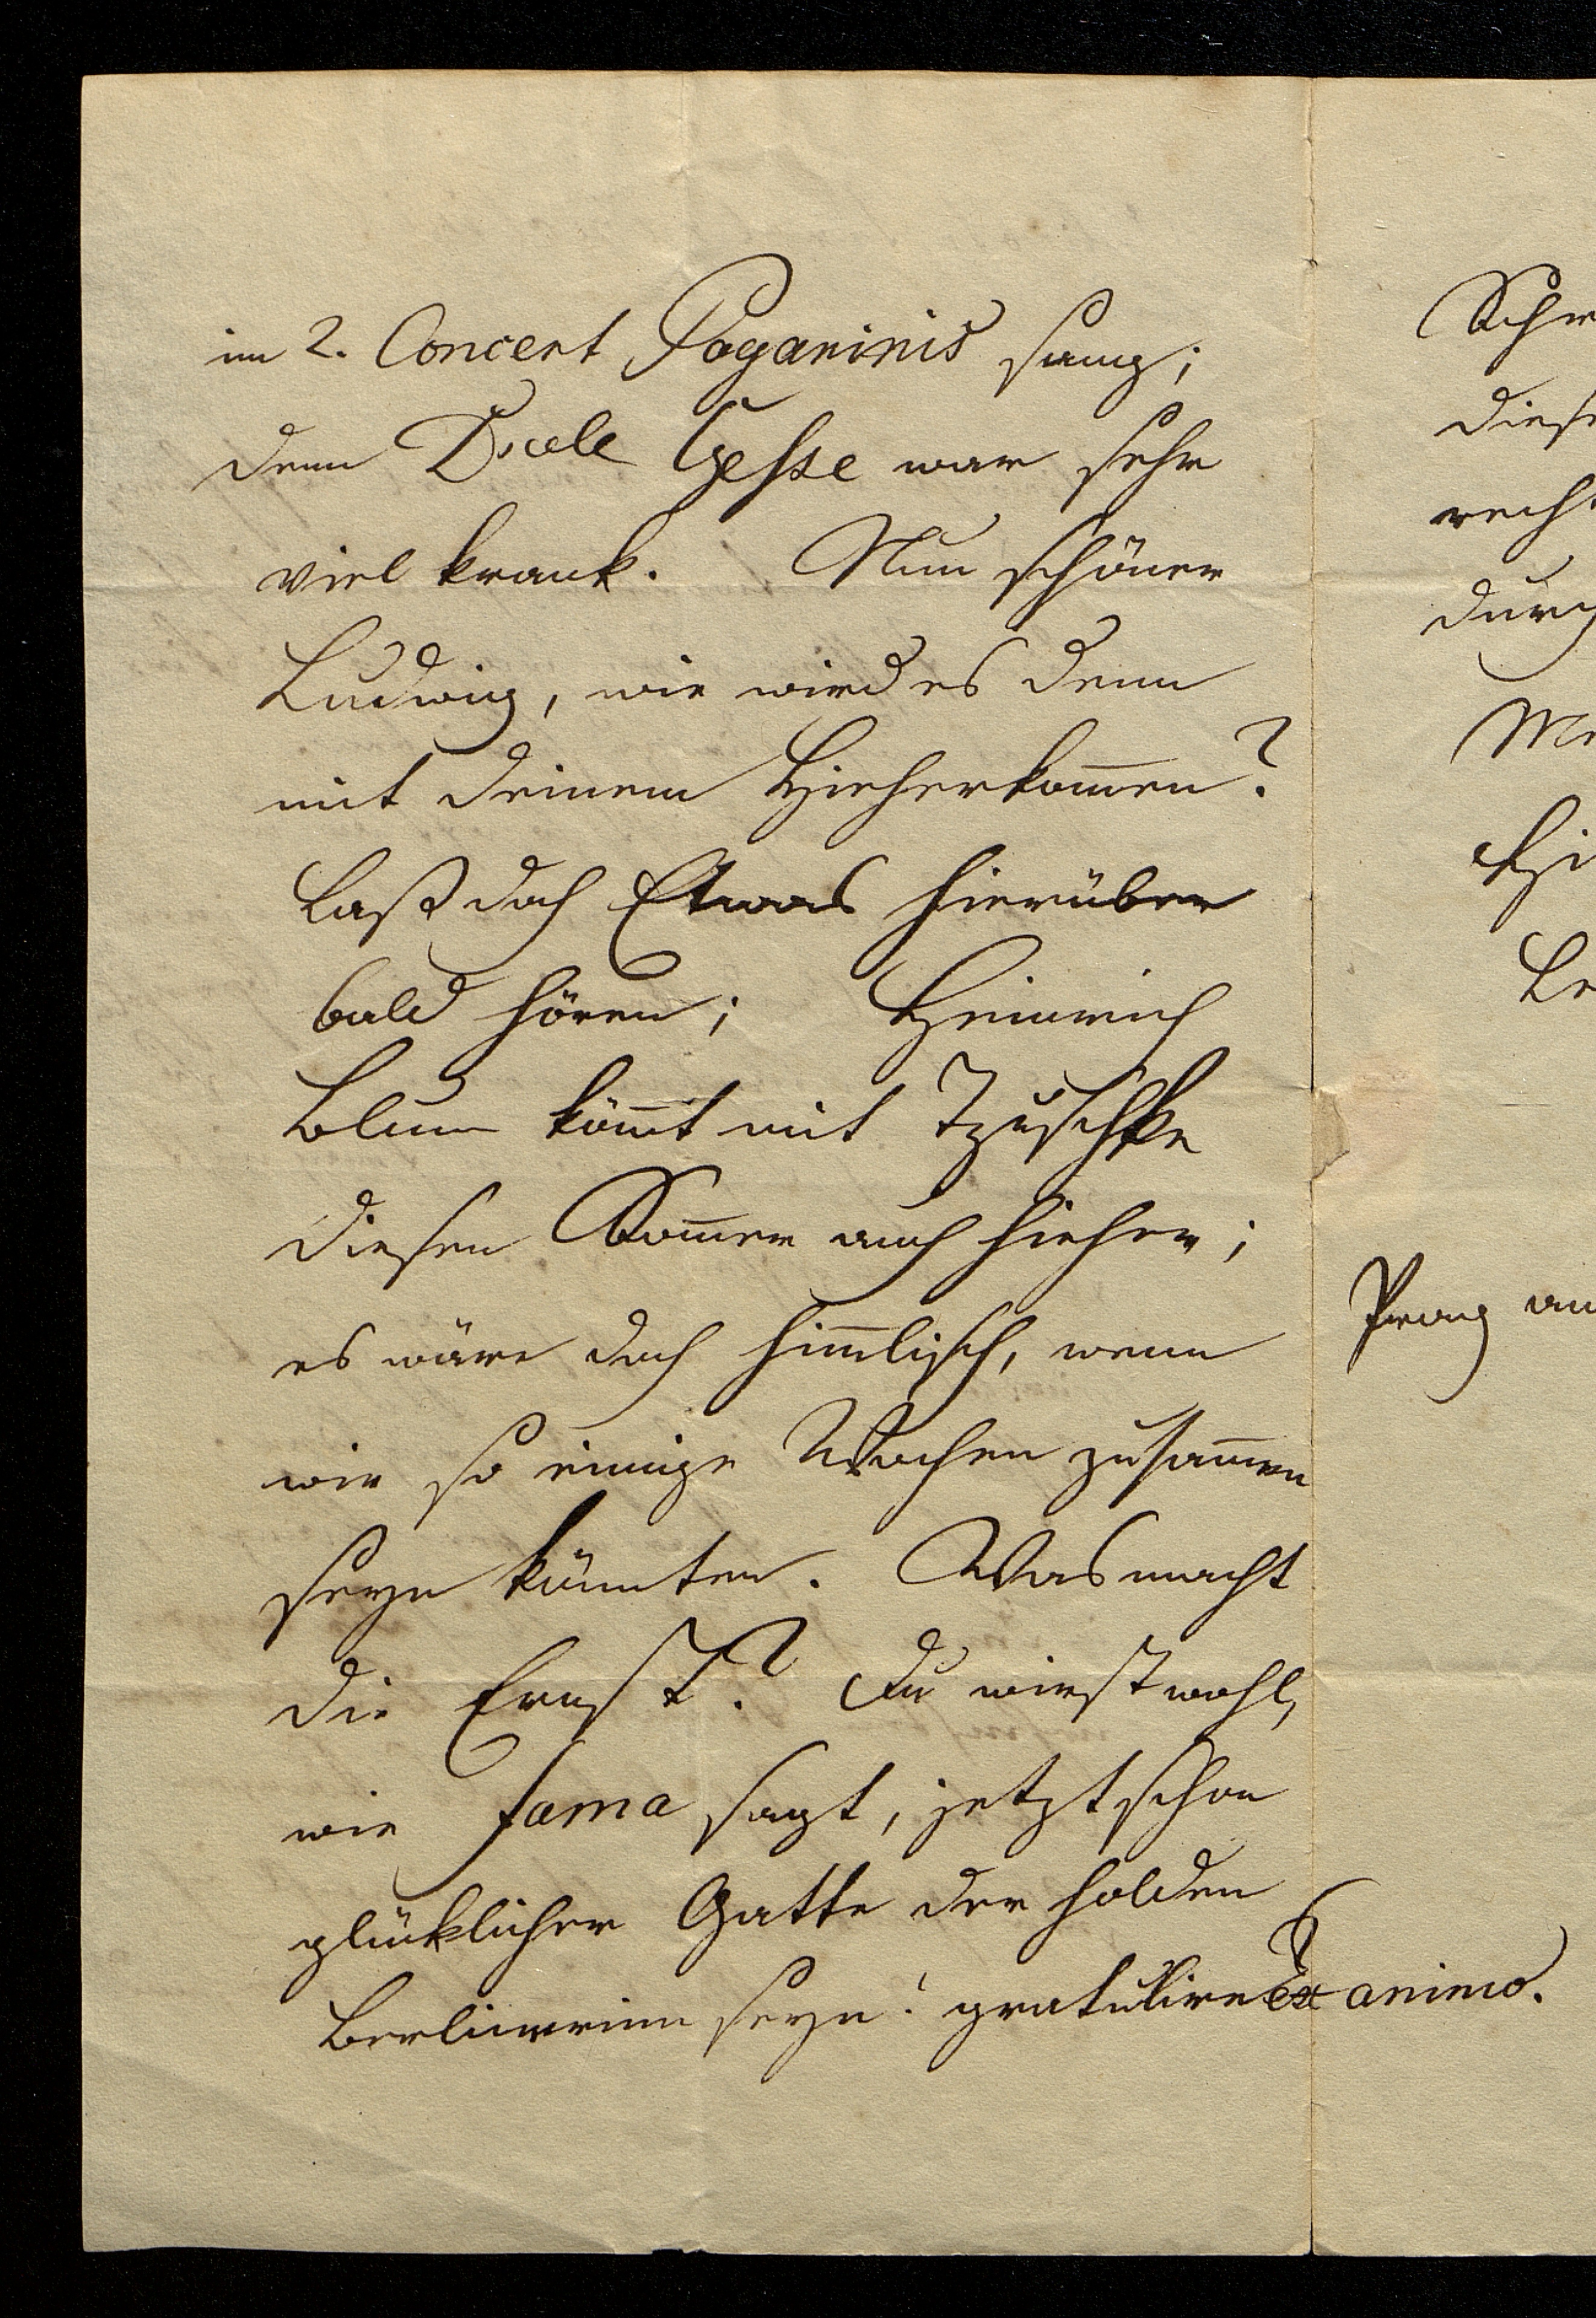 im 2. Concert Paganinis sang;
denn Dĕlle Gesse war sehr
viel krank. Nun schöner
Ludwig, wie wird es denn
mit deinem Hieherkom̄en?
Laß doch Etwas hierüber
bald hören; Heinrich
Blum köm̄t mit Tzuschke
diesen Som̄er auch hieher;
es wäre doch him̄lisch, wenn
wir so einige Wochen zusam̄en
seyn könnten. Was macht
die Ernst? Du wirst wohl,
wie fama sagt, jetzt schon
glücklicher Gatte der holden
Berlinerinn seyn! gratulire Ex animo.
Schr
diese
recht
durch
Me
Hi
Le
Prag am